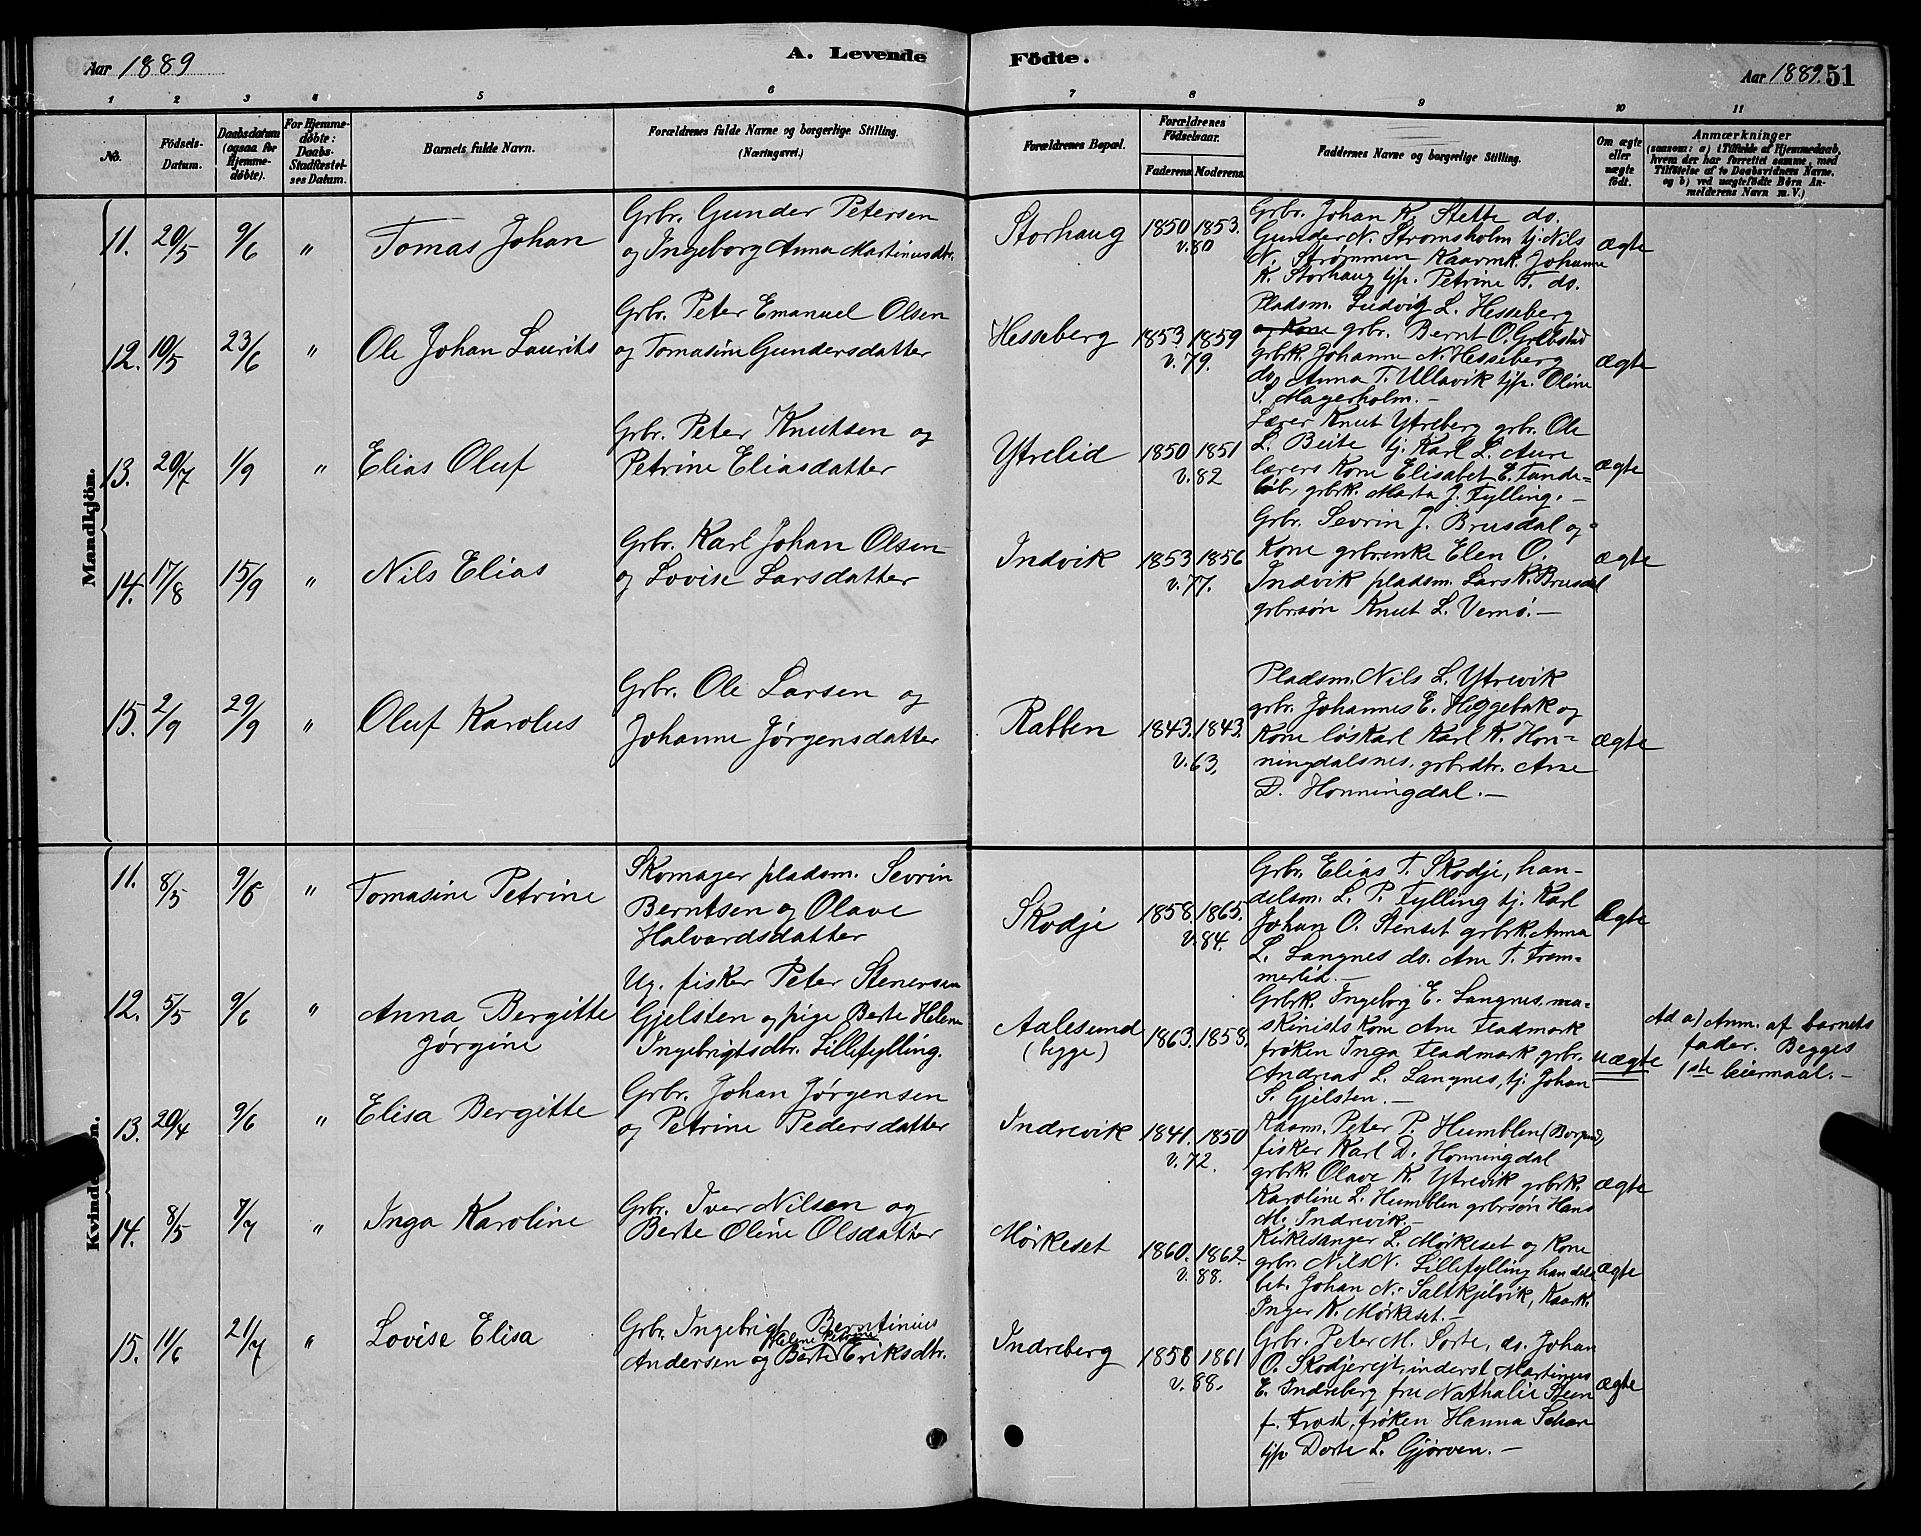 Aar 1889
A. Levende
Födte.
Aar 1889. 51
1 2 3 4 5 6 7 8 9 10 11
No.
Födsels-
Datum.
Daabsdatum
(ogsaa for
Hjemme-
döbte).
For Hjemme-
döbte:
Daabs-
Stadfæstel-
ses Datum.
Barnets fulde Navn.
Forældrenes fulde Navne og borgerlige Stilling.
(Næringsvei.)
Forældrenes Bopæl.
Forældrenes
Födselsaar.
Faderens. Moderens.
Faddernes Navne og borgerlige Stilling.
Om ægte
eller
uægte
födt.
Anmærkninger
(saasom: a) i Tilfælde af Hjemmedaab,
hvem der har forrettet samme, med
Tilföielse af to Daabsvidners Navne.
og b) ved uægtefödte Börn An-
melderens Navn m. V.)
Mandkjön.
11. 20/5 9/6 " Tomas Johan
Grbr. Gunder Petersen
og Ingeborg Anna Martinusdtr.
Storhaug 1850 1853.
v. 80
Grbr. Johan K. Stette do.
Gunder N. Strømsholm tj. Nils
N. Strømmen Kaarmk. Johanne
K. Storhaug tjp. Petrine T. do.
ægte
12. 10/5 23/6 " Ole Johan Laurits
Grbr. Peter Emanuel Olsen
og Tomasine Gundersdatter
Hesseberg 1853 1859
v. 79.
Pladsm. Ludvig L. Hesseberg
og Kone grbr. Bernt O. Grebstad
grbrk. Johanne N. Hesseberg
do. Anna T. Ullavik tjp. Oline
S. Magerholm. —
ægte
13. 20/7 1/9 " Elias Oluf
Grbr. Peter Knutsen og
Petrine Eliasdatter
Ytrelid 1850 1851
v. 82
Lærer Knut Ytreberg grbr. Ole
L. Beite tj. Karl L. Aure
lærers Kone Elisabet E. Tande-
løb, grbrk. Marta J. Fylling. —
ægte
14. 17/8 15/9 " Nils Elias
Grbr. Karl Johan Olsen
og Lovise Larsdatter
Indvik 1853 1856
v. 77.
Grbr. Sevrin J. Brusdal og
Kone grbrenke Elen O.
Indvik pladsm. Lars K. Brusdal
grbrsøn Knut L. Vernö. —
ægte
15. 2/9 29/9 " Oluf Karolus
Grbr. Ole Larsen og
Johanne Jørgensdatter
Rabben 1843. 1843.
v. 63.
Pladsm. Nils L. Ytrevik
grbr. Johannes E. Heggebak og
Kone løskarl Karl K. Hon-
ningdalsnes, grbrdtr. Ane
D. Honningdal. —
ægte
11. 8/5 9/6 " Tomasine Petrine
Skomager pladsm. Sevrin
Berntsen og Olave
Halvardsdatter
Skodje 1858. 1865.
v. 84.
Grbr. Elias T. Skodje, han-
delsm. L. P. Fylling tj. Karl
Johan O. Stenset grbrk. Anna
L. Langnes do. Ane T. Frem-
merlid. —
Ægte
12. 5/5 9/6 " Anna Bergitte
Jørgine
Ug. fisker Peter Stenersen
Gjelsten og pige Berte Helene
Ingebrigtsdtr. Lillefylling.
Aalesund
(begge)
1863. 1858.
Grbrk. Ingeborg E. Langnes, ma-
skinists kone Ane Fladmark
frøken Inga Fladmark grbr.
Andreas L. Langnes, tj. Johan
S. Gjelsten. —
uægte
Ad a) Anm. af barnets
fader. Begges
1ste leiermaal. —
13. 20/4 9/6 " Elisa Bergitte
Grbr. Johan Jørgensen
og Petrine Pedersdatter
Indrevik 1841. 1850
v. 72.
Kaarm. Peter P. Humblen (Borgund)
fisker Karl D. Honningdal
grbrk. Olave K. Ytrevik grbrk.
Karoline L. Humblen grbrsøn Hans
M. Indrevik. —
ægte
14. 8/5 7/7 " Inga Karoline
Grbr. Iver Nilsen og
Berte Oline Olsdatter
Mørkeset 1860. 1862.
v. 88.
Kirkesanger L. Mørkeset og Kone
grbr. Nils N. Lillefylling handels
bet. Johan N. Saltkjelvik, Kaark.
Inger K. Mørkeset. —
ægte
15. 11/6 21/7 " Lovise Elisa
Grbr. Ingebrigt Berntinius
Helene Petrine
Andersen og Berte Eriksdtr.
Indreberg 1858 1861
v. 88.
Grbr. Peter M. Sorte, do. Johan
O. Skodjereit, inderst Martinus
E. Indreberg fru Nathalie Steen
f. Frost, frøken Hanna
tjp. Dorte L. Gjørven. —
ægte